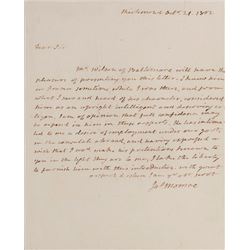 Richmond Octr. 21. 1802
Dear Sir
Mr. Wilson of Baltimore will have the
pleasure of presenting you this letter. I knew him
in France sometime while I was there, and from
what I saw and heard of his character, considered
him as an upright intelligent and deserving
man. I am of opinion that full confidence may
be reposed in him in those respects. He has intima-
ted to me a desire of employment under our govt.
in the consulate abroad, and having expressed a
wish that I wod. make his pretentions known to
you in the light they are to me, I take the liberty
to furnish him with this introduction. with great
respect & esteem I am yr. obt. servt
Jas. Monroe